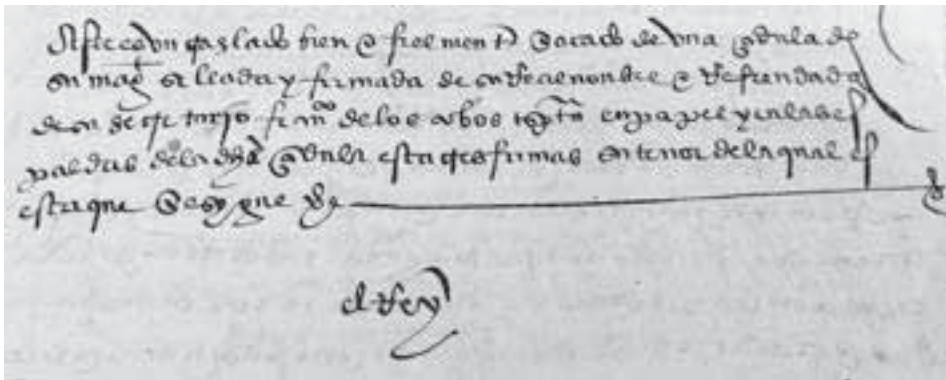 Este es un traslado bien e fielmente sacado de una cedula de
su mag sellada y firmada de su rreal nonbre e rrefrendada
de su secretario frco de los cobos en papel y en las es
paldas de la dha cedula esta tres firmas su tenor de la qual es
esta que se sygue
el rrey